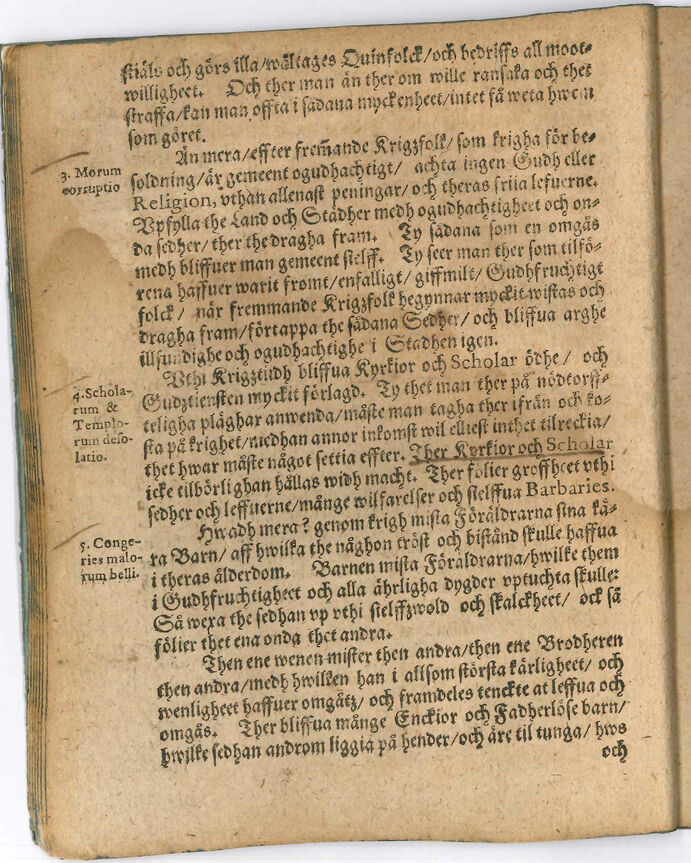 stiäls och görs illa/wältages Quinfolck/och bedriffs all moot-
willigheet. Och ther man än ther om wille ransaka och thet
straffa/kan man offta i sådana myckenheet/intet få weta hwem
som göret.
Än mera/effter fremmande Krigzfolk/som krigha för be-
3. Morum
corruptio
soldning/är gemeent ogudhachtigt/ achta ingen Gudh eller
Religion, vthan allenast peningar/och theras friia lefuerne.
Vpfylla the Land och Städher medh ogudhachtigheet och on-
da sedher/ther the dragha fram. Ty sådana som en omgås
medh bliffuer man gemeent sielff. Ty seer man ther som tilfö-
rena haffuer warit fromt/enfalligt/giffmilt/Gudhfruchtigt
folck/ når fremmande Krigzfolk begynnar myckit wistas och
dragha fram/förtappa the sådana Sedher/och bliffua arghe
illfundighe och ogudhachtighe i Stadhen igen.
Vthi Krigztiidh bliffua Kyrkior och Scholar ödhe/ och
4. Schola-
rum &
Templo-
rum deso-
latio.
Gudztiensten myckit förlagd. Ty thet man ther på nödtorff-
teligha pläghar anwenda/måste man tagha ther ifrån och ko-
sta på krighet/medhan annor inkomst wil elliest inthet tilreckia/
thet hwar måste något settia effter. Ther Kyrkior och Scholar
icke tilbörlighan hållas widh macht. Ther fölier groffheet vthi
sedher och leffuerne/månge wilfarelser och sielffua Barbaries.
Hwadh mera? genom krigh mista Föräldrarna sina kä-
5. Conge-
ries malo-
rum belli.
ra Barn/aff hwilka the någhon tröst och biständ skulle haffua
i theras ålderdom. Barnen mista Föräldrarna/hwilke them
i Gudhfruchtigheet och alla ährligha dygder vptuchta skulle:
Så wexa the sedhan vp vthi sielffzwold och skalckheet/ ock så
fölier thet ena onda thet andra.
Then ene wenen mister then andra/then ene Brodheren
then andra/medh hwilken han i allsom största kärligheet/ och
wenligheet haffuer omgåtz/och framdeles tenckte at leffua och
omgås. Ther bliffua månge Enckior och Fadherlöse barn/
hwilke sedhan androm liggia på hender/och äre til tunga/ hws
och